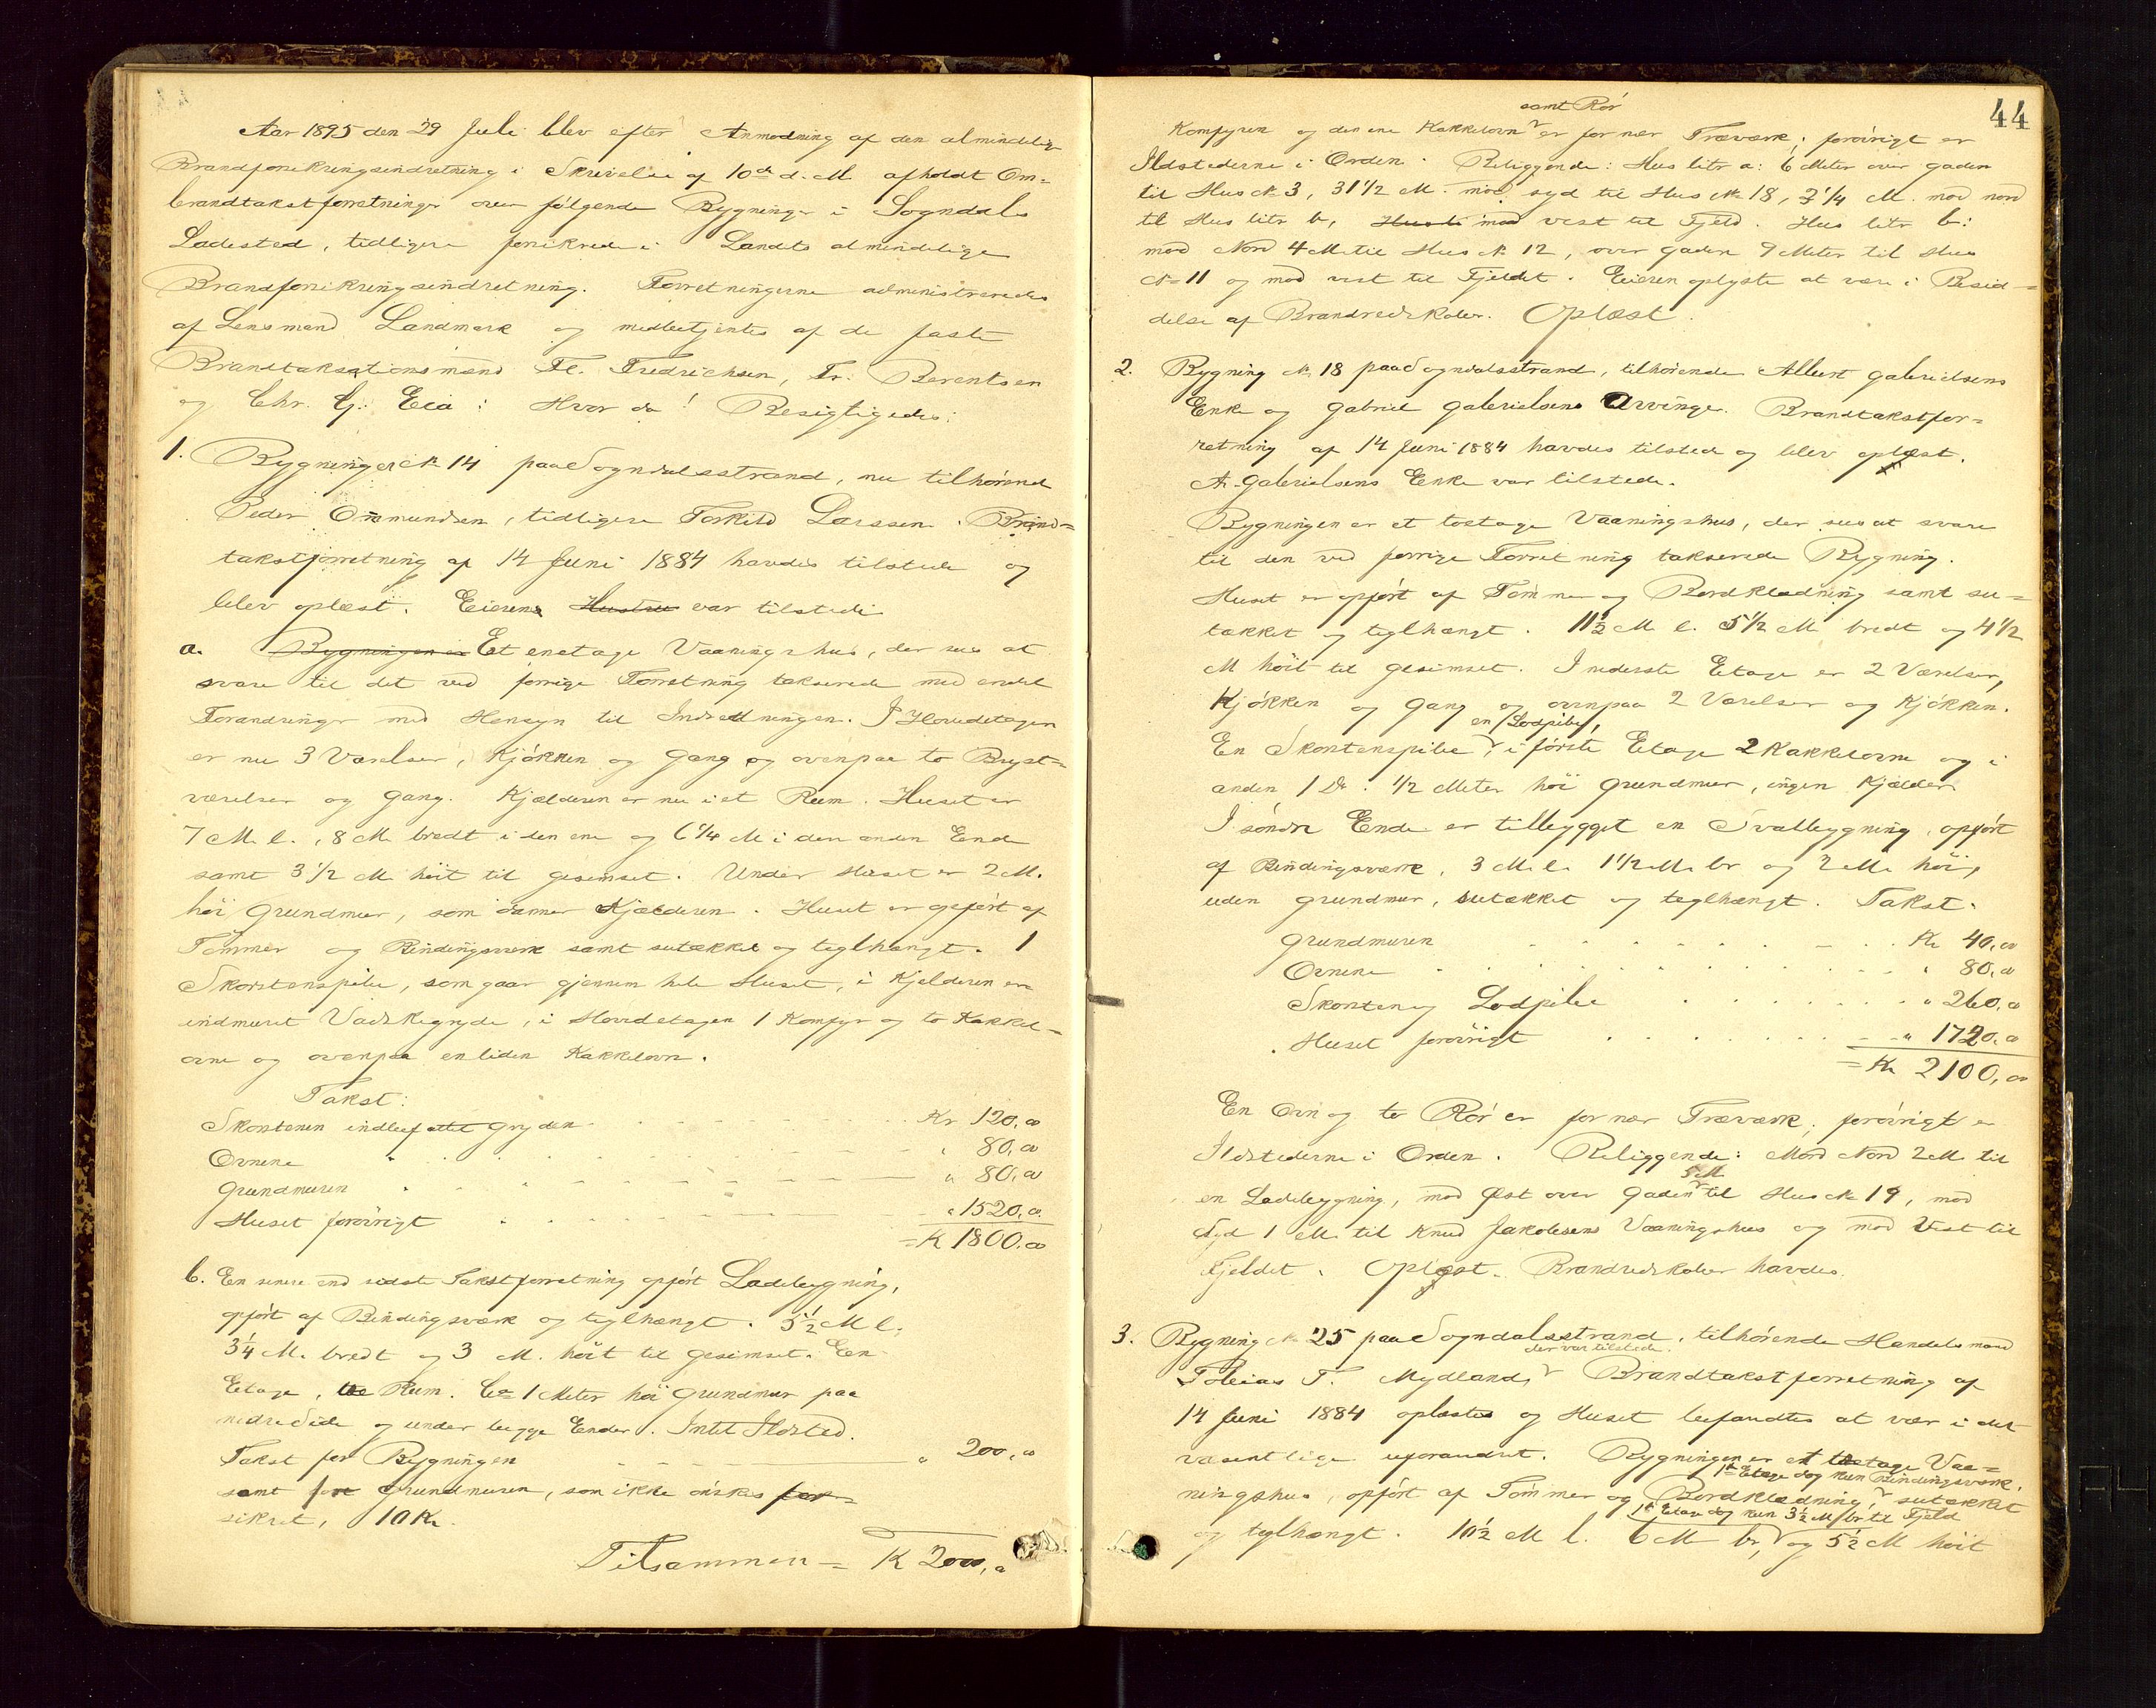 Aar 1895 den 29 Juli blev efter Anmodning af den almindelige
Brandforsikringsindretning i Skrivelse af 10de d. M. afholdt Om=
brandtakstforretninger over følgende Bygninger i Sogndals
Ladested, tidligere forsikrede i Landets almindelige
Brandforsikringsindretning. Forretningerne administreredes
af Lensmand Landmark og medbetjentes af de faste
Brandtaksationsmænd Fl. Fredrichsen, Fr. Berentsen
og Chr. G. Eia: Hvor da! Besigtigedes:
1. Bygninger № 14 paa Sogndalsstrand, nu tilhørend
Peder Ommundsen, tidligere Torkild Larssen. Brand=
takstforretning af 14 Juni 1884 havdes tilstede og
blev oplæst. Eieren Hustru var tilstede
a. Bygningen er Et enetage Vaaningshus, der sees at
svare til det ved forrige Forretning takserede med endel
Forandringer med Hensyn til Indredningen. I Hovedetagen
er nu 3 Værelser, Kjøkken og Gang og ovenpaa to Bryst=
værelser og Gang. Kjælderen er nu i et Rum. Huset er
7 M. l., 8 M. bredt i den ene og 6 1/4 M i den anden Ende
samt 3 1/2 M høit til Gesimset. Under Huset er 2 M.
høi Grundmur, som danner Kjælderen. Huset er opført af
Tømmer og Bindingsværk samt sutækket og teglhængt. 1
Skorstenspibe, som gaar gjennem hele Huset, i Kjelderen en
indmuret Vadskegryde, i Hovedetagen 1 Komfyr og to Kakkel=
ovne og ovenpaa en liden Kakkelovn.
Takst:
Skorstenen indbefattet Gryden Kr 120,00
Ovnene " 80,00
Grundmuren " 80,00
Huset forøvrigt " 1520,00
= K 1800,00
b. En senere end sidste Takstforretning opført Ladebygning,
opført af Bindingsværk og teglhængt. 5 1/2 M l.
3 1/4 M. bredt og 3 M. høit til Gesimset. Een
Etage, Rum. Ca 1 Meter høi Grundmur paa
nedre Side og under begge Ender. Intet Ildsted.
Takst for Bygningen " 200,00
samt for Grundmuren, som ikke ønskes for=
sikret, 10 Kr.
Tilsammen = K 2000,00
44
samt Rør
Komfyren og den ene Kakkelovn er for nær Træværk; forøvrigt er
Ildstederne i Orden. Beliggende: Hus litr a: 6 Meter over Gaden
til Hus № 3, 31 1/2 M. mod syd til Hus № 18, 3 1/4 M. mod nord
til Hus litr b, mod vest til Fjeld. Hus litr b:
mod Nord 4 M. til Hus № 12, over Gaden 9 Meter til Hus
№ 11 og mod vest til Fjeldet. Eieren oplyste at være i Besid=
delse af Brandredskaber. Oplæst.
2. Bygning № 18 paa Sogndalsstrand, tilhørende Albert Gabrielsens
Enke og Gabriel Gabrielsens Arvinger. Brandtakstfor=
retning af 14 Juni 1884 havdes tilstede og blev oplæst.
A. Gabrielsens Enke var tilstede.
Bygningen er et toetage Vaaningshus, der sees at svare
til den ved forrige Forretning takserede Bygning.
Huset er opført af Tømmer og Bordklædning samt su=
tækket og teglhængt. 11 1/2 M l. 5 1/2 M bredt og 4 1/2
M høit til Gesimset. I nederste Etage er 2 Værelser,
Kjøkken og Gang og ovenpaa 2 Værelser og Kjøkken.
en Lodpibe,
En Skorstenspibe i første Etage 2 Kakkelovne og i
anden 1 Do. 1/2 Meter høi Grundmur, ingen Kjælder.
I søndre Ende er tilbygget en Svalbygning, opført
af Bindingsværk, 3 M. l. 1 1/2 M. br og 2 M. høi,
uden Grundmur, sutækket og teglhængt. Takst.
Grundmuren Kr 40,00
Ovnene " 80,00
Skorsten og Lodpibe " 260,00
Huset forøvrigt " 1720,00
= Kr 2100,00
En Ovn og to Rør er for nær Træværk; forøvrigt er
Ildstederne i Orden. Beliggende: Mod Nord 2 M. til
5 M.
en Ladebygning, mod Øst over Gaden til Hus № 19, mod
Syd 1 M. til Knud Jakobsens Vaaningshus og mod Vest til
Fjeldet. Oplæst. Brandredskaber havdes.
3. Bygning № 25 paa Sogndalsstrand, tilhørende Handelsmand
der var tilstede.
Tobias T. Mydland, Brandtakstforretning af
14 Juni 1884 oplæstes og Huset befandtes at være i det
væsentlige uforandret. Bygningen er et toetage Vaa=
1st Etage dog kun Bindingsværk,
ningshus, opført af Tømmer og Bordklædning, sutækket
1st Etage dog kun 3 1/2 M br til Fjeld
og teglhængt. 10 1/2 M l. 6 M br, og 5 1/2 M høit